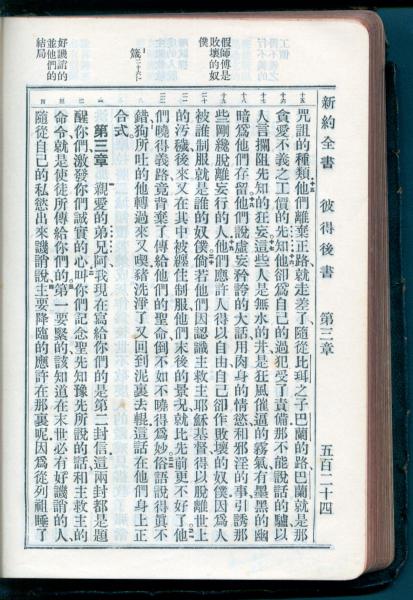 新約全書 彼得後書 第三章 五百二十四
假師傅是
敗壞的奴
僕
箴
好譏誚的
並他們的
結局
咒詛的種類他們離棄正路就走差了隨從比珥之子巴蘭的路巴蘭就是那
貪愛不義之工價的先知他卻爲自己的過犯受了責備那不能說話的驢以
人言攔阻先知的狂妄這些人是無水的井是狂風催逼的霧氣有墨黑的幽
暗爲他們存留他們說虛妄矜誇的大話用肉身的情慾和邪淫的事引誘那
些剛纔脫離妄行的人他們應許人得以自由自己卻作敗壞的奴僕因爲人
被誰制服就是誰的奴僕倘若他們因認識主救主耶穌基督得以脫離世上
的污穢後來又在其中被纏住制服他們末後的景况就比先前更不好了他
們曉得義路竟背棄了傳給他們的聖命倒不如不曉得爲妙俗語說得眞不
錯狗所吐的他轉過來又喫豬洗淨了又回到泥裏去輥這話在他們身上正
合式
第三章 親愛的弟兄阿我現在寫給你們的是第二封信這兩封都是題
醒你們激發你們誠實的心叫你們記念聖先知豫先所說的話和主救主的
命令就是使徒所傳給你們的第一要緊的該知道在末世必有好譏誚的人
隨從自己的私慾出來譏誚說主要降臨的應許在那裏呢因爲從列祖睡了